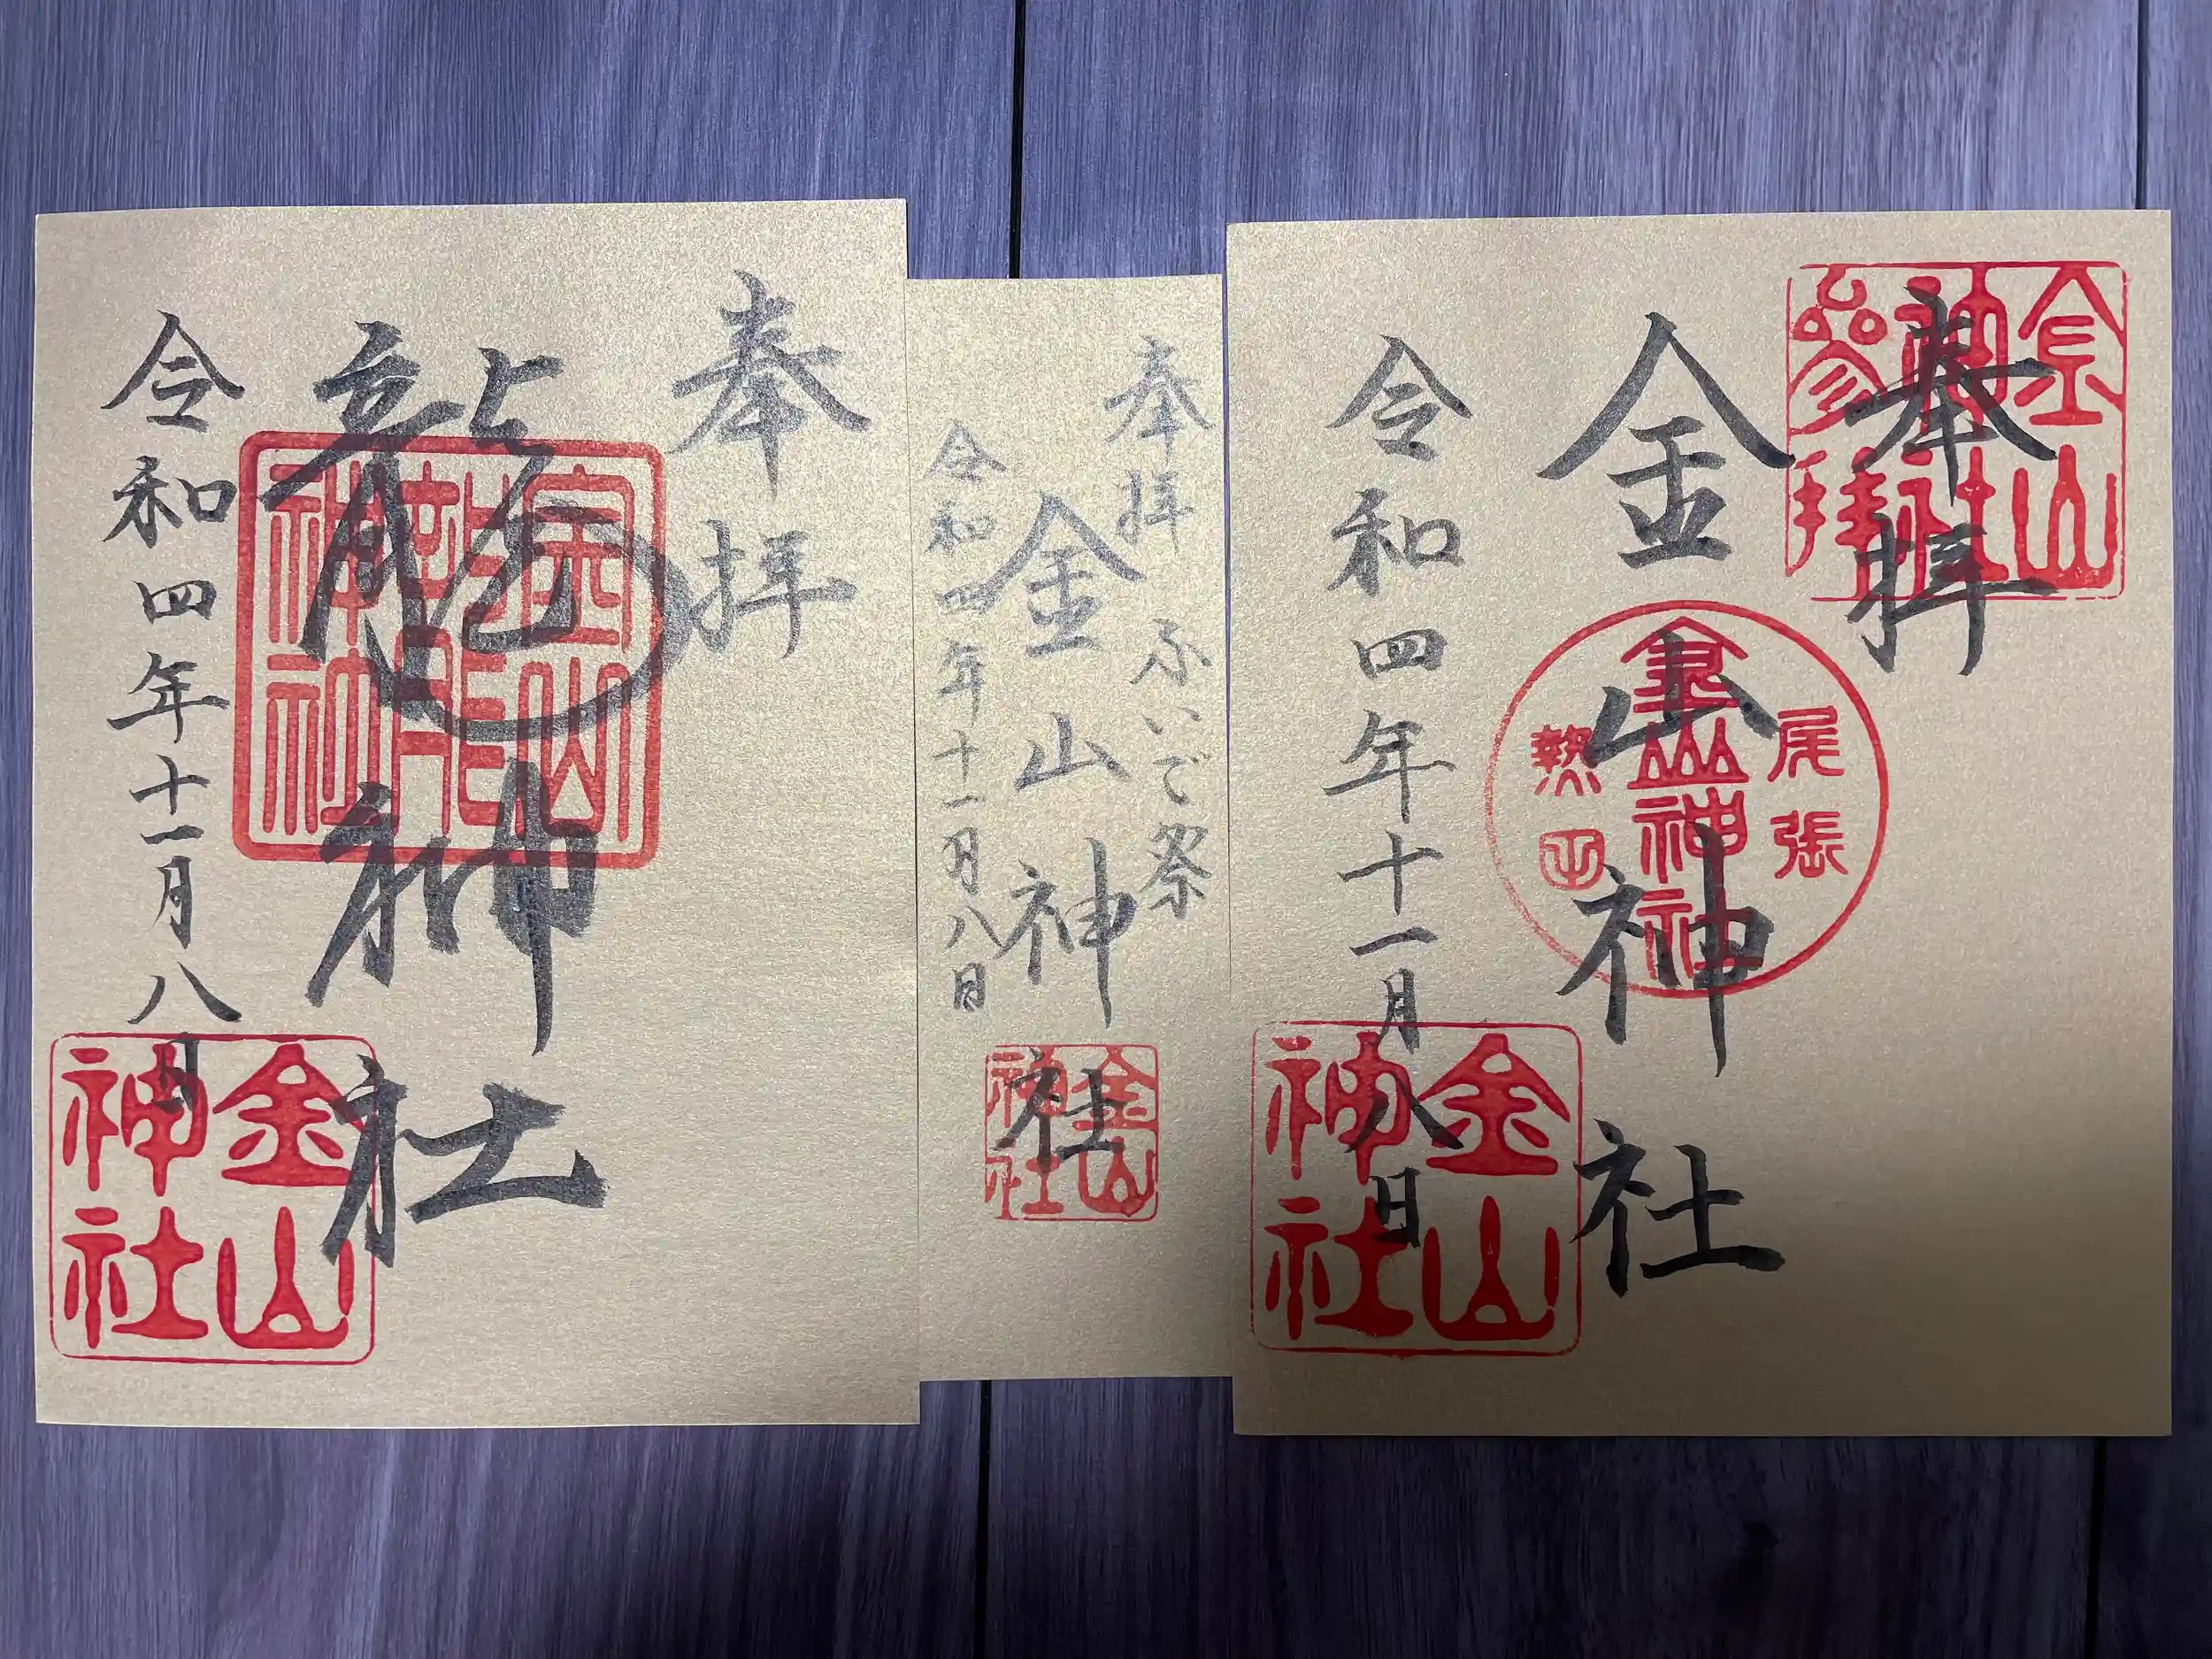 奉拝
龍神社
令和四年十一月八日
金山
神社
奉拝 ふいご祭
金山神社
令和四年十一月八日
金山
神社
奉拝
金山神社
令和四年十一月八日
金山
神社
参拝
尾張
金山神社
熱田
金山
神社